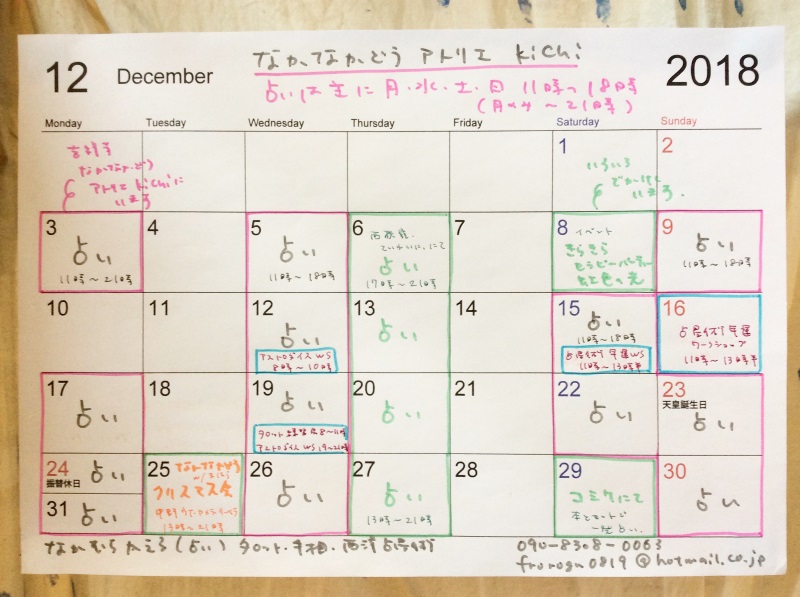 なかなかどう アトリエ KiChi
12 December 2018
占いは主に月・水・土・日 11時〜18時
(月のみ〜21時)
Monday Tuesday Wednesday Thursday Friday Saturday Sunday
吉祥寺
なかなかどう
アトリエ KiChiに
います
1
いろいろ
でかけて
います.
2
3
占い
11時〜21時
4
5
占い
11時〜18時
6
西荻窪.
にて
占い
17時〜21時
7
8 イベント
きらきら
セラピーパーティー
虹色の光
9
占い
11時〜18時
10
11
12
占い
アストロダイスWS
8時〜10時
13
占い
14
15
占い
11時〜18時
占星術 WS
11時〜13時半
16
占星術
ワークショップ
11時〜13時半
17
占い
18
19
占い
タロット
アストロダイスWS 19〜21時
20
占い
21
22
占い
23
天皇誕生日
占い
24
振替休日
占い
31
占い
25
なかなかどう
クリスマス会
13時〜21時
26
占い
27
占い
13時〜21時
28
29
コミケにて
30
占い
なかむらかえる(占い) タロット・手相・西洋占星術
090-8308-0063
frurogu0819@hotmail.co.jp